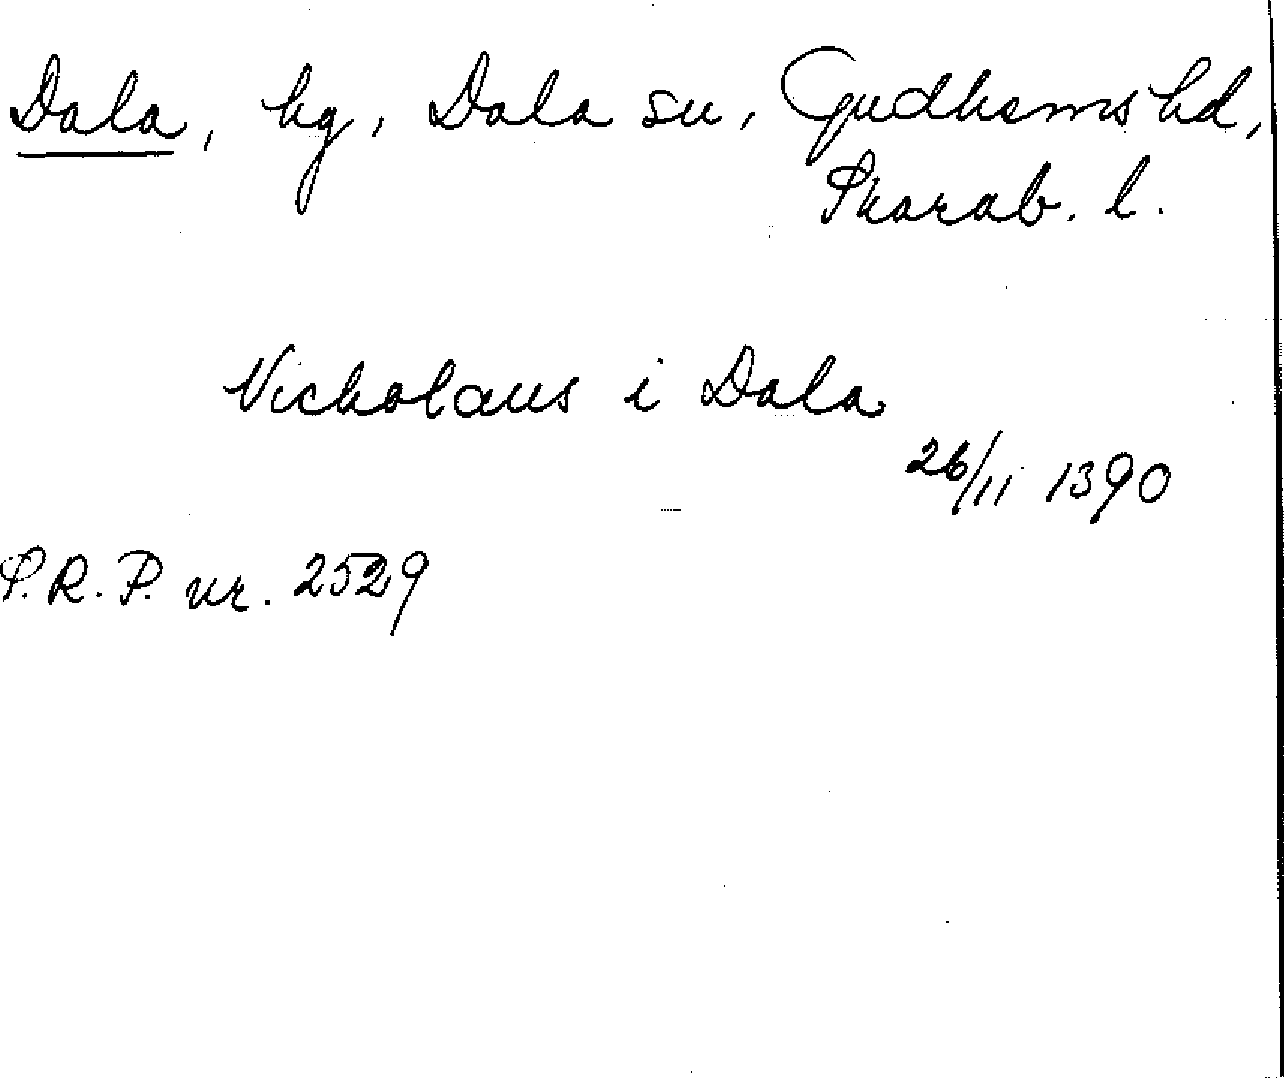 Dala, kg, Dala sn, Gudhems hd,
Skarab. l.
Nickolaus i Dala
26/11 1390
S.R.P. nr. 2529